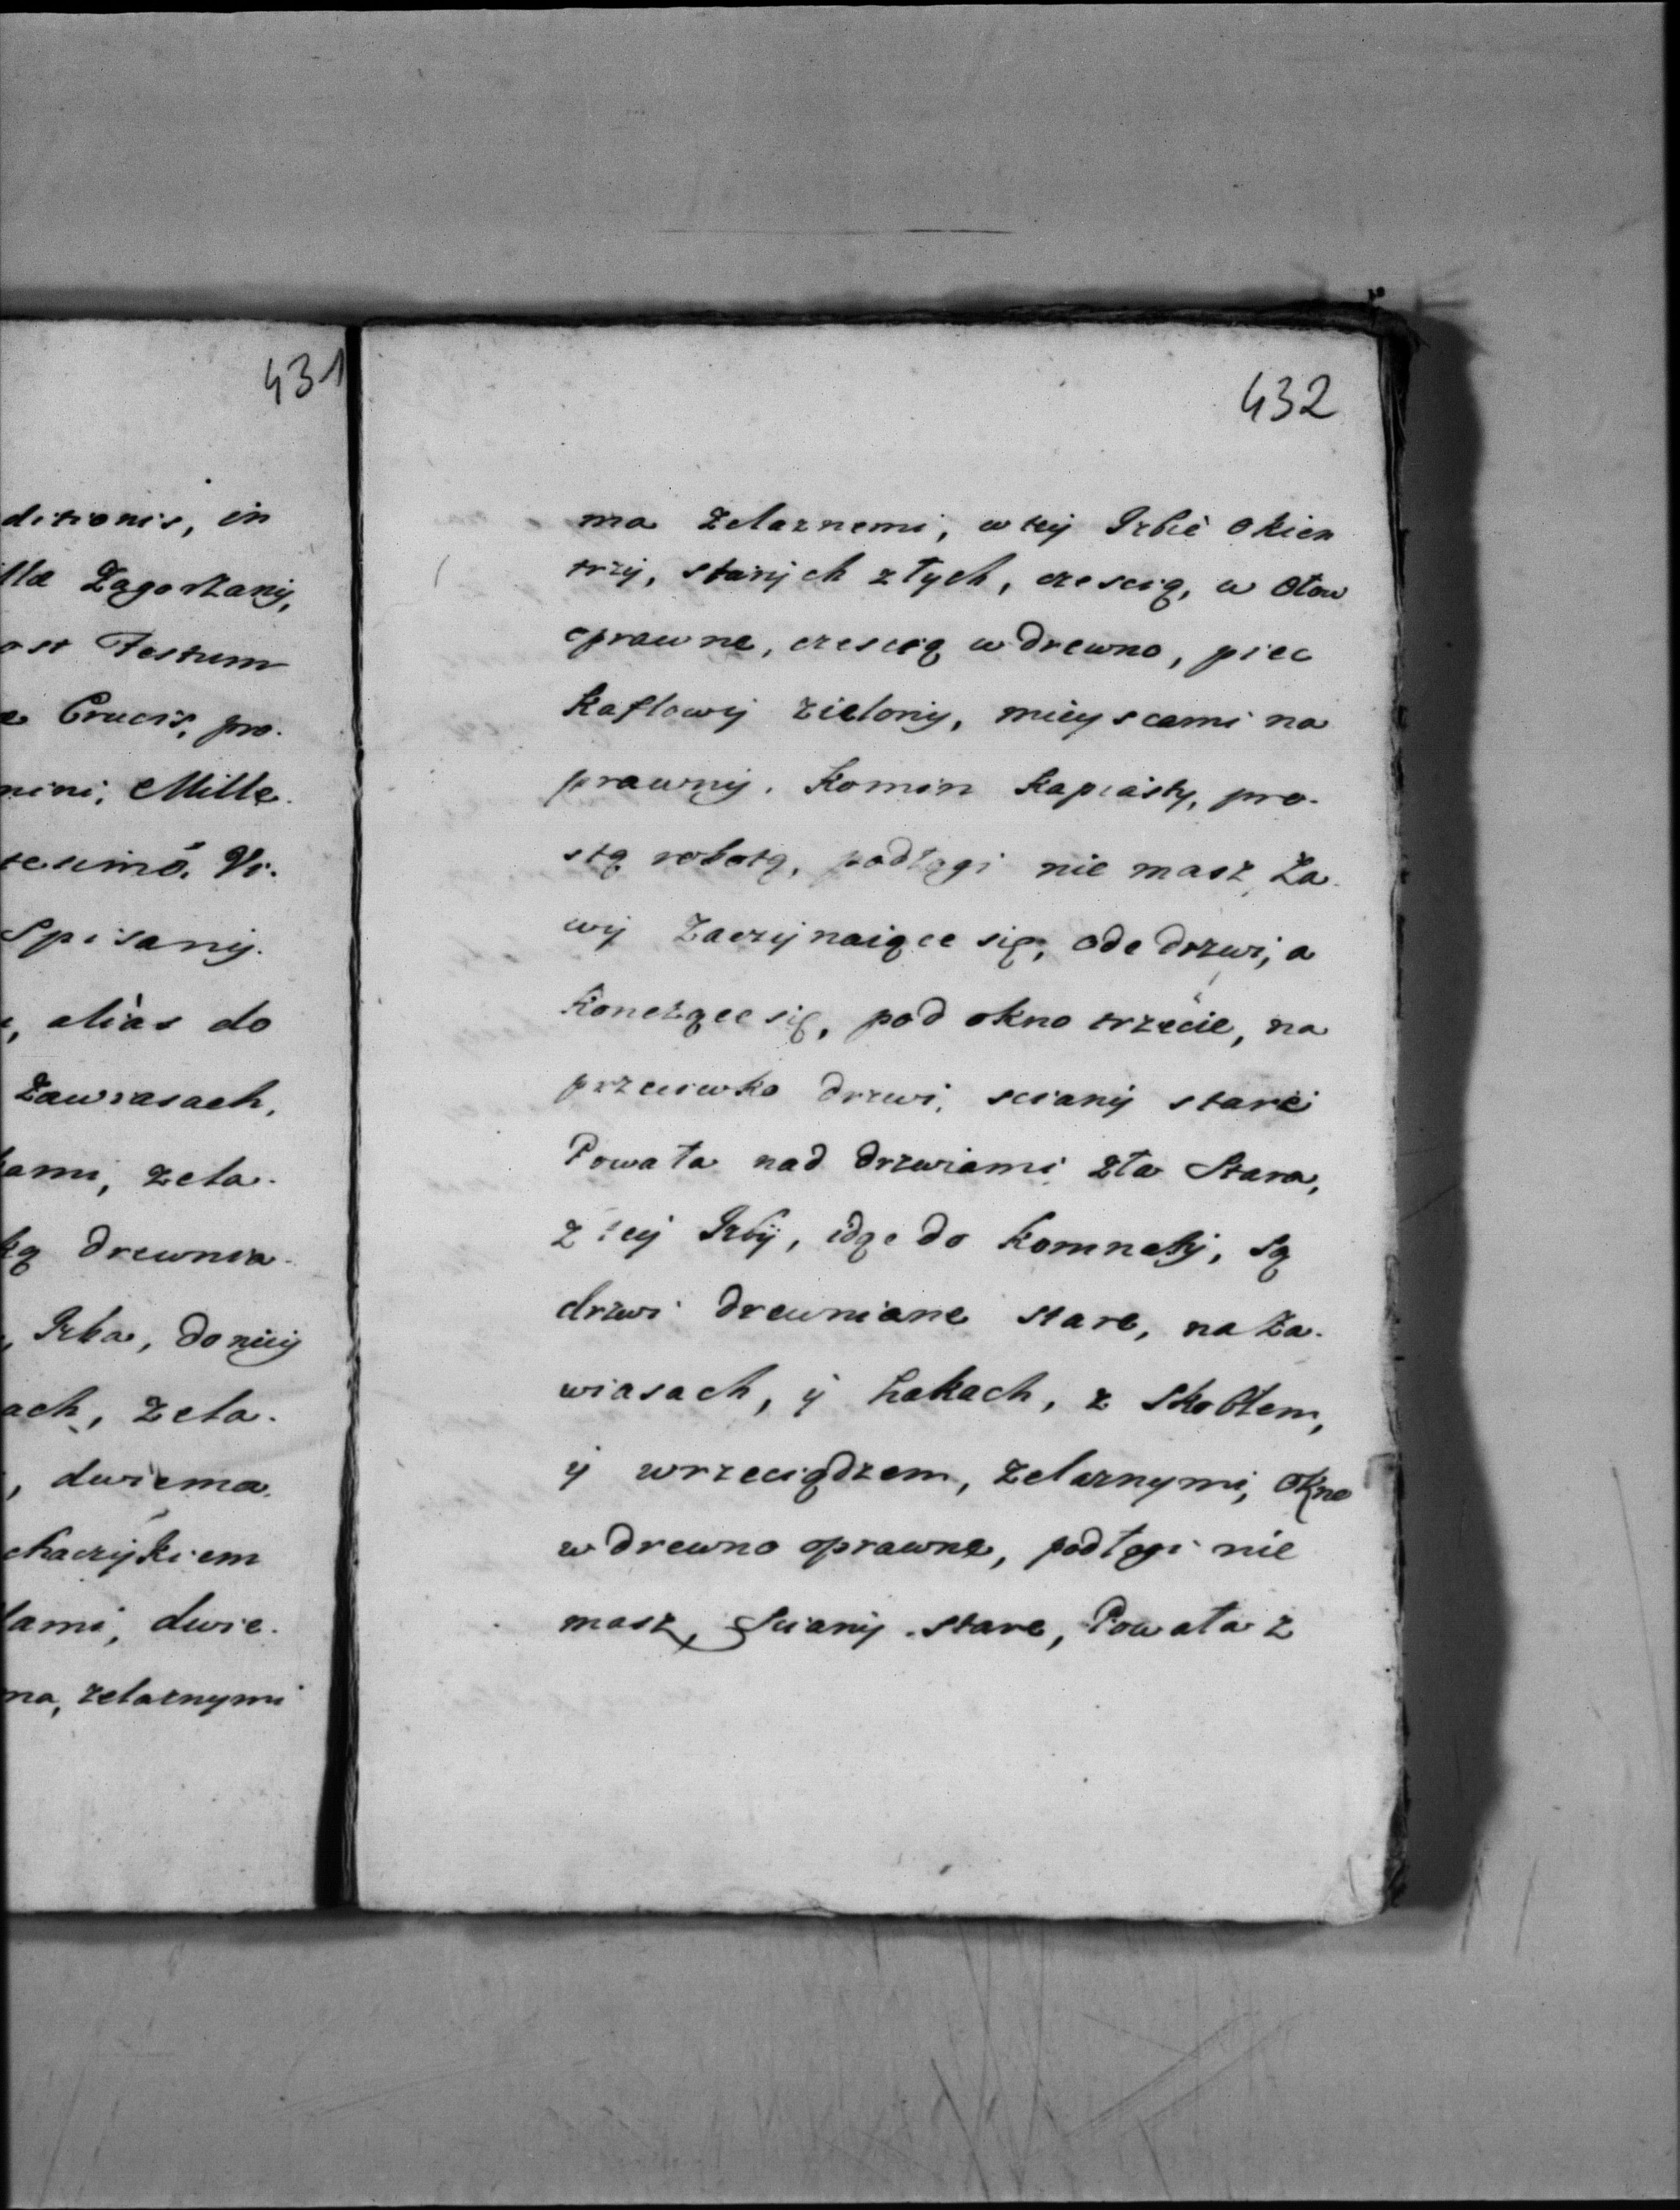 431
ditionis, in
lla Zagorzany,
ost Festum
Crucis, pro.
mini, Mille.
tesimó, Vi.
Spisany.
, aliàs do
Zawiasach,
kami, zela.
ką drewnia.
, Izba, do niey
ach, zela.
, dwiema.
chaczykiem
lami, dwie.
ma, zelaznymi
432
ma zelaznemi, w tey Izbie okien
trzy, starych złych, czescią, w Ołow
oprawne, czescią w drewno, piec
Kaflowy zielony, mieyscami na
prawny. Komin Kapiasty, pro.
stą robotą, podłogi nie masz, Ła.
wy Zaczynaiące się, ode drzwi, a
Konczące się, pod okno trzecie, na
przeciwko drzwi, sciany stare
Powała nad drzwiami zła Stara,
z tey Izby, idąc do Komnaty, Są
drzwi drewniane stare, na Za.
wiasach, y hakach, z Skoblem,
y wrzeciądzem, zelaznymi, okno
w drewno oprawne, podłogi nie
masz, Sciany stare, Powała z